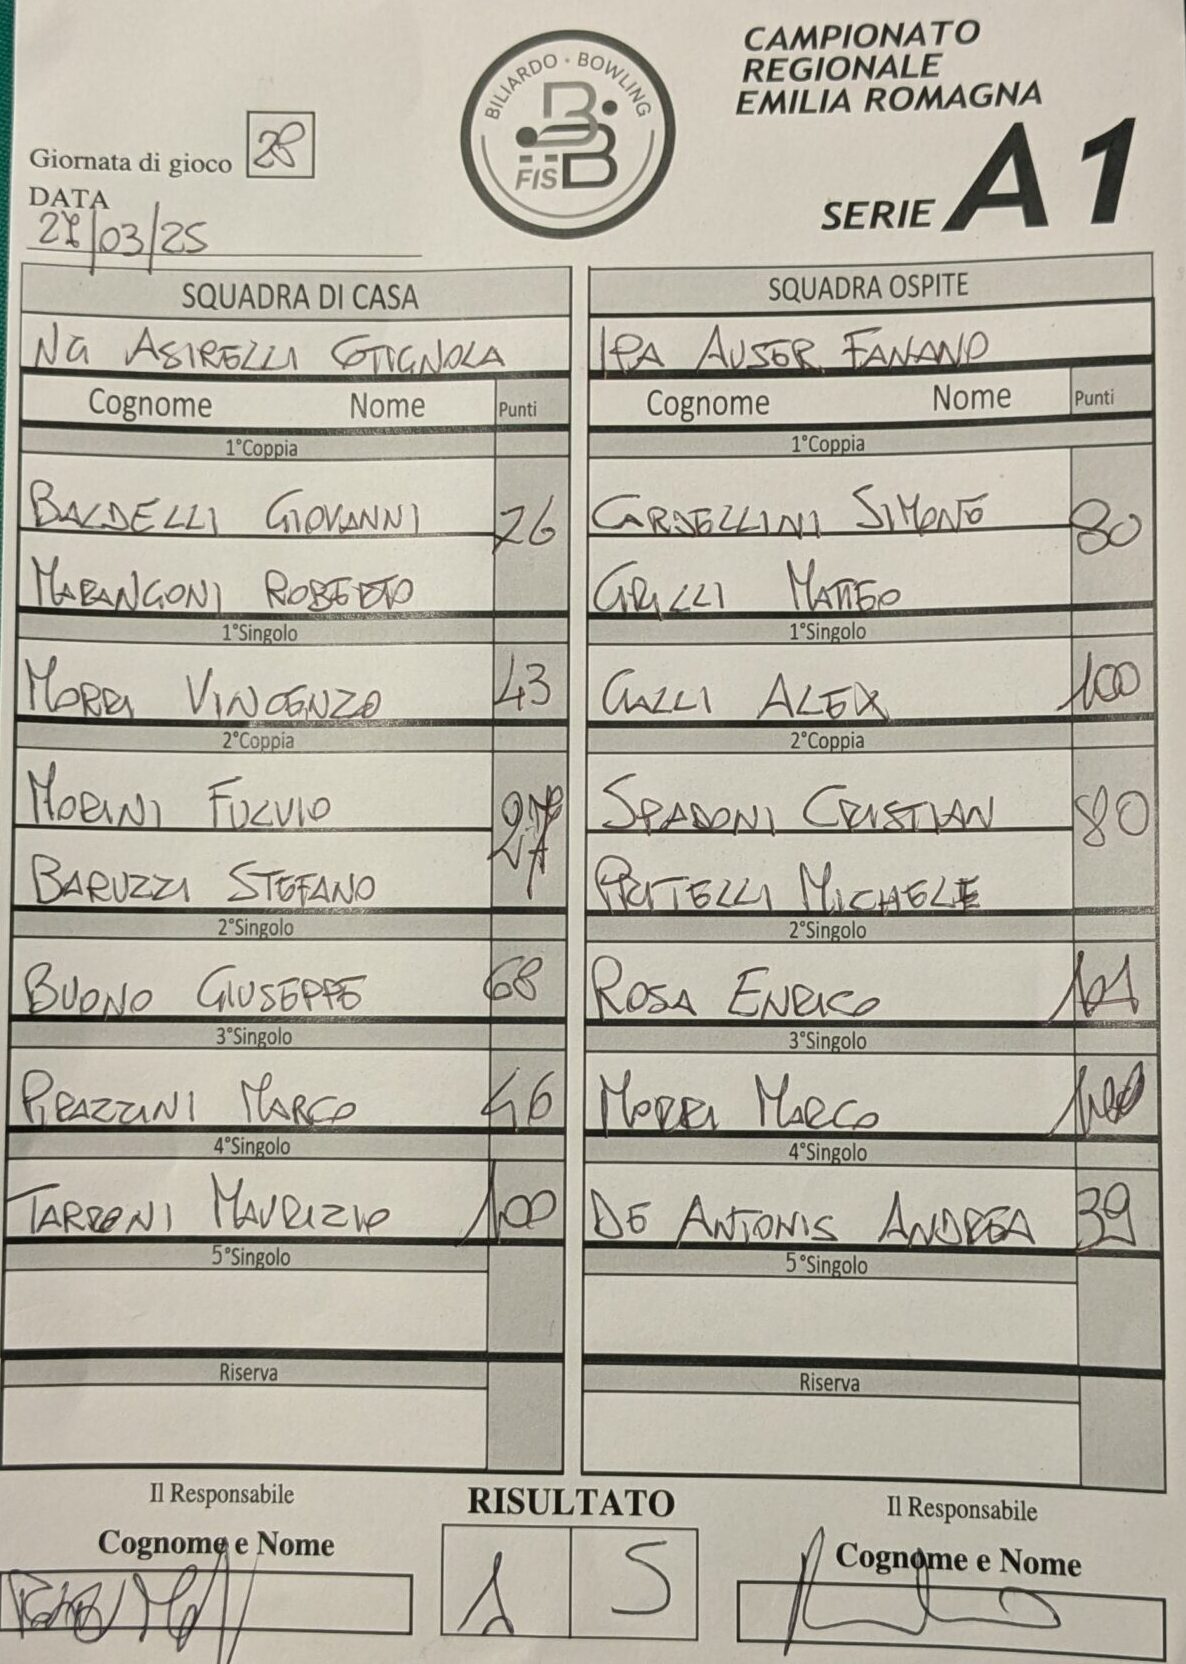 BILIARDO · BOWLING
FISBB
CAMPIONATO
REGIONALE
EMILIA ROMAGNA
SERIE A1
Giornata di gioco 28
DATA
27/03/25
SQUADRA DI CASA
NG ASIRELLI COTIGNOLA
Cognome Nome Punti
1°Coppia
BALDELLI GIOVANNI 76
MARANGONI ROBERTO
1°Singolo
MORRI VINCENZO 43
2°Coppia
MORINI FULVIO 27
BARUZZI STEFANO
2°Singolo
BUONO GIUSEPPE 68
3°Singolo
PIRAZZINI MARCO 46
4°Singolo
TARRONI MAURIZIO 100
5°Singolo
Riserva
SQUADRA OSPITE
IPA AUSER FANANO
Cognome Nome Punti
1°Coppia
SIMONE 80
GRILLI MATTEO
1°Singolo
GALLI ALEX 100
2°Coppia
SPADONI CRISTIAN 80
MICHELE
2°Singolo
ROSA ENRICO 101
3°Singolo
MORRI MARCO
4°Singolo
DE ANTONIS ANDREA 39
5°Singolo
Riserva
Il Responsabile
Cognome e Nome
RISULTATO
1 5
Il Responsabile
Cognome e Nome